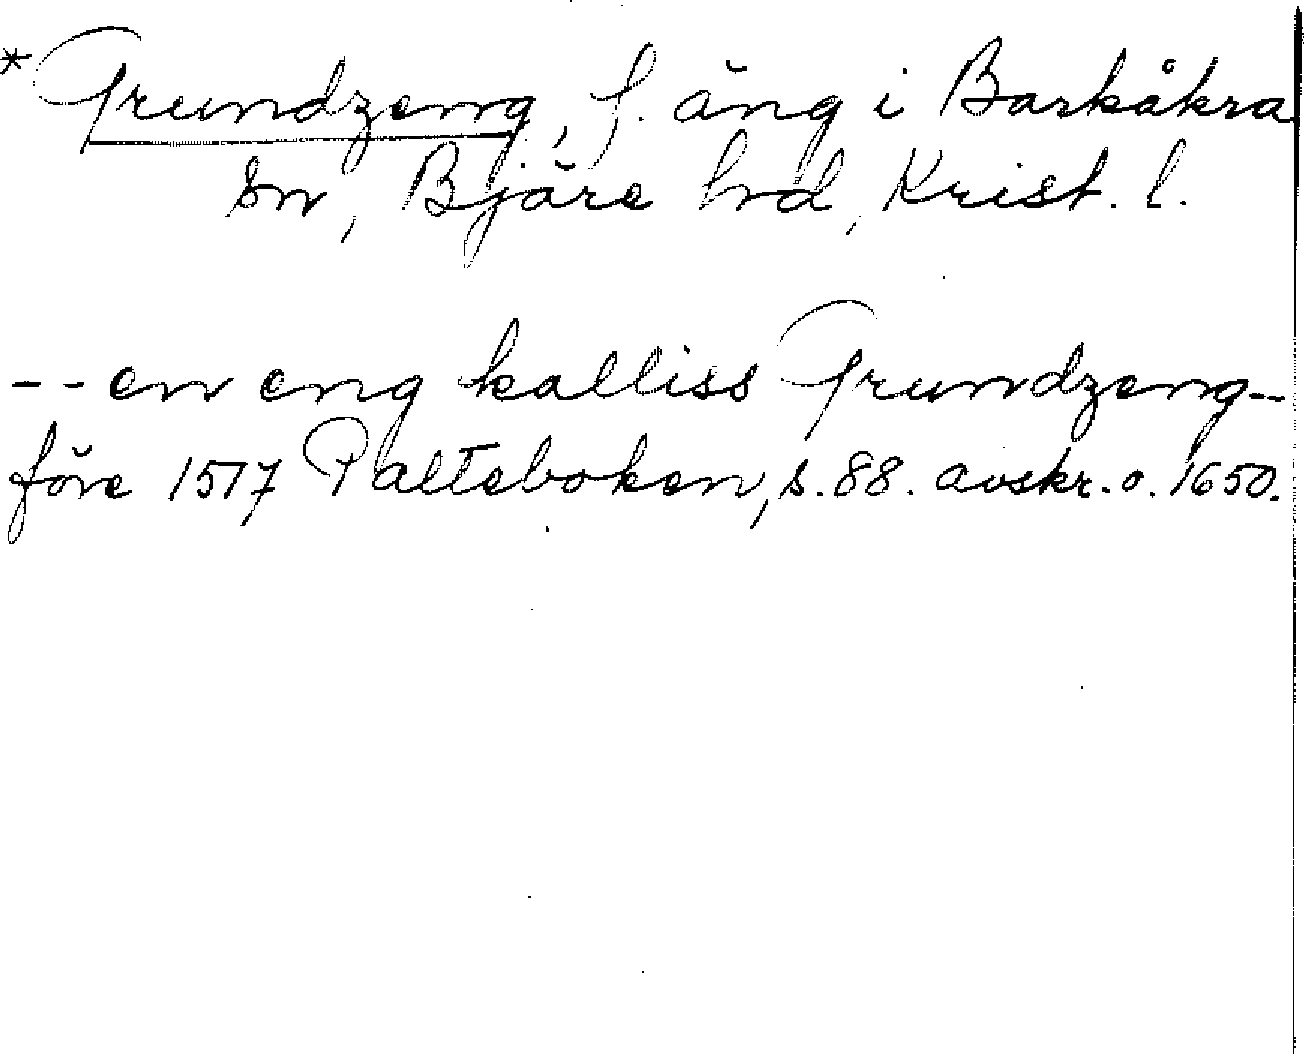 * Grundzeng, f. äng i Barkåkra
sn, Bjäre hd, Krist. l.
-- en eng kalliss Grundzeng --
före 1517 Palteboken, s. 88. avskr. o. 1650.